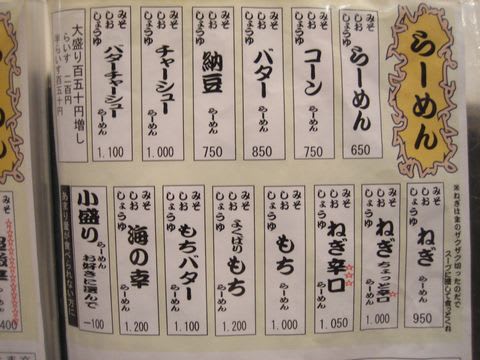 らーめん
みそ
しお
しょうゆ
らーめん
650
みそ
しお
しょうゆ
コーン
らーめん
750
みそ
しお
しょうゆ
バター
らーめん
850
みそ
しお
しょうゆ
納豆
らーめん
750
みそ
しお
しょうゆ
チャーシュー
らーめん
1.000
みそ
しお
しょうゆ
バターチャーシュー
らーめん
1.100
大盛り百五十円増し
らいす 二百円
半らいす百五十円
※ねぎは生のザクザク切ったのだで
スープに浸して食ってくれ
みそ
しお
しょうゆ
ねぎ
らーめん
950
みそ
しお
しょうゆ
ねぎ
ちょっと辛口☆
らーめん
1.000
みそ
しお
しょうゆ
ねぎ辛口☆☆
らーめん
1.050
みそ
しお
しょうゆ
もち
らーめん
1.000
みそ
しお
しょうゆ
よくばり
もち
らーめん
1.200
みそ
しお
しょうゆ
もちバター
らーめん
1.100
みそ
しお
しょうゆ
海の幸
らーめん
1.200
小盛り
らーめん
お好きに選んで
-100
あまり量が食べられない方に
めん
400